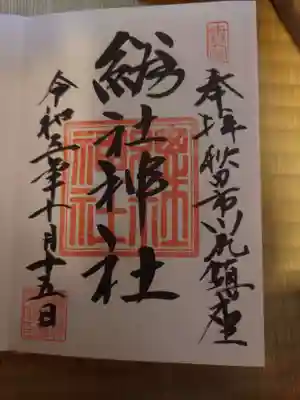 奉拝 秋田市川尻鎮座
總社神社
令和五年十月十五日